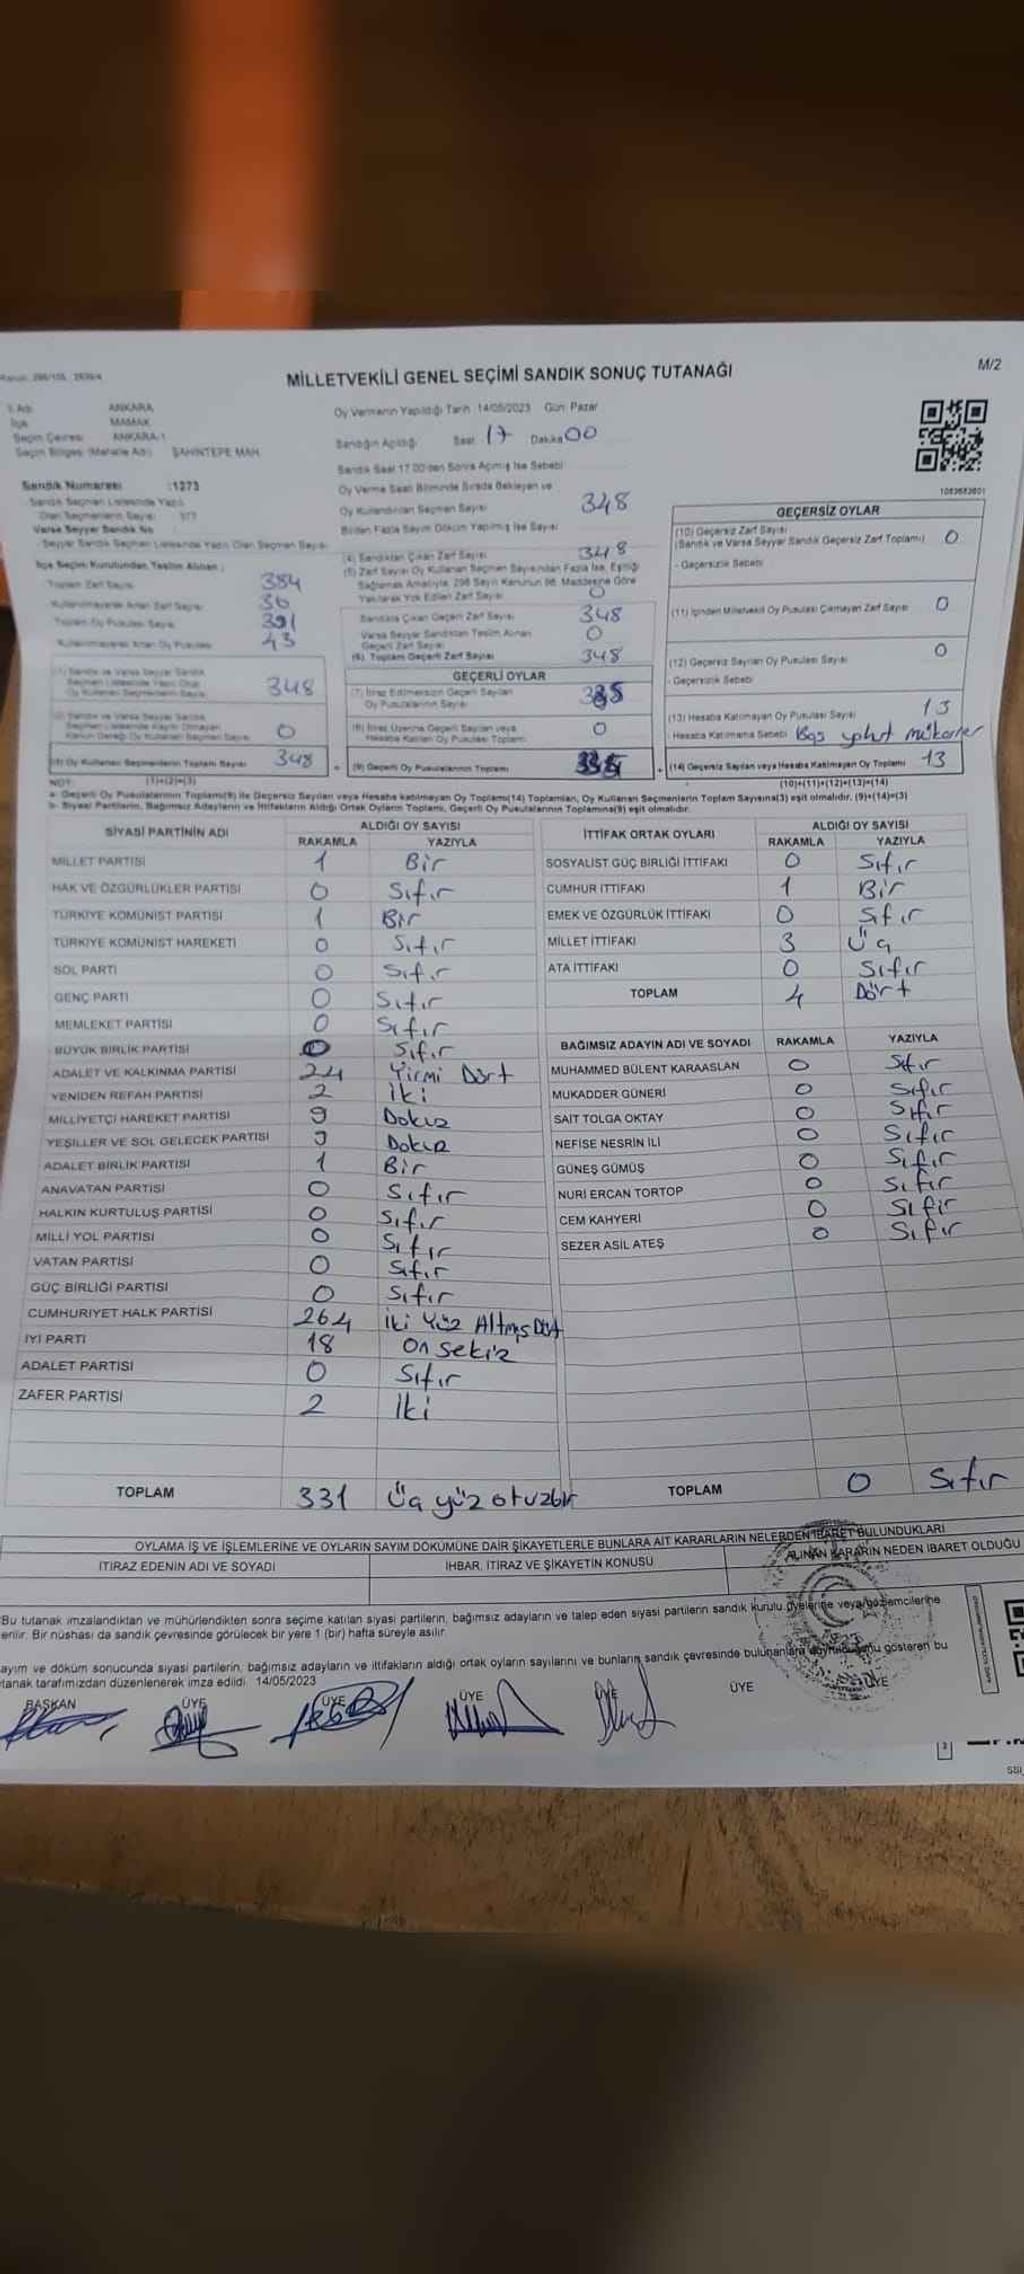 M/2
MİLLETVEKİLİ GENEL SEÇİMİ SANDIK SONUÇ TUTANAĞI
ANKARA
MAMAK
ANKARA-1
ŞAHİNTEPE MAH.
Sandık Numarası :1273
Oy Vermenin Yapıldığı Tarih 14/05/2023 Gün Pazar
Sandığın Açıldığı Saat 17 Dakika 00
Sandık Saat 17.00'den Sonra Açılmış İse Sebebi
Oy Verme Saati Bitiminde Sırada Bekleyen ve
Oy Kullandırılan Seçmen Sayısı 348
Birden Fazla Sayım Döküm Yapılmış İse Sayısı
Toplam Zarf Sayısı 384
36
Toplam Oy Pusulası Sayısı 391
43
348
0
(3) Oy Kullanan Seçmenlerin Toplam Sayısı 348
(1)+(2)=(3)
(4) Sandıktan Çıkan Zarf Sayısı 348
0
Sandıkta Çıkan Geçerli Zarf Sayısı 348
Varsa Seyyar Sandıktan Teslim Alınan
Geçerli Zarf Sayısı 0
(6) Toplam Geçerli Zarf Sayısı 348
GEÇERLİ OYLAR
(7) İtiraz Edilmeksizin Geçerli Sayılan
Oy Pusulalarının Sayısı 335
(8) İtiraz Üzerine Geçerli Sayılan veya
Hesaba Katılan Oy Pusulası Toplamı 0
(9) Geçerli Oy Pusulalarının Toplamı 335
GEÇERSİZ OYLAR
(10) Geçersiz Zarf Sayısı
(Sandık ve Varsa Seyyar Sandık Geçersiz Zarf Toplamı) 0
- Geçersizlik Sebebi
(11) İçinden Milletvekili Oy Pusulası Çıkmayan Zarf Sayısı 0
(12) Geçersiz Sayılan Oy Pusulası Sayısı 0
- Geçersizlik Sebebi
(13) Hesaba Katılmayan Oy Pusulası Sayısı 13
Hesaba Katılmama Sebebi Boş yahut mükerrer
(14) Geçersiz Sayılan veya Hesaba Katılmayan Oy Toplamı 13
(10)+(11)+(12)+(13)=(14)
NOT:
a- Geçerli Oy Pusulalarının Toplamı(9) ile Geçersiz Sayılan veya Hesaba katılmayan Oy Toplamı(14) Toplamları, Oy Kullanan Seçmenlerin Toplam Sayısına(3) eşit olmalıdır. (9)+(14)=(3)
b- Siyasi Partilerin, Bağımsız Adayların ve İttifakların Aldığı Ortak Oyların Toplamı, Geçerli Oy Pusulalarının Toplamına(9) eşit olmalıdır.
SİYASİ PARTİNİN ADI ALDIĞI OY SAYISI
RAKAMLA YAZIYLA
MİLLET PARTİSİ 1 Bir
HAK VE ÖZGÜRLÜKLER PARTİSİ 0 Sıfır
TÜRKİYE KOMÜNİST PARTİSİ 1 Bir
TÜRKİYE KOMÜNİST HAREKETİ 0 Sıfır
SOL PARTİ 0 Sıfır
GENÇ PARTİ 0 Sıfır
MEMLEKET PARTİSİ 0 Sıfır
BÜYÜK BİRLİK PARTİSİ 0 Sıfır
ADALET VE KALKINMA PARTİSİ 24 Yirmi Dört
YENİDEN REFAH PARTİSİ 2 İki
MİLLİYETÇİ HAREKET PARTİSİ 9 Dokuz
YEŞİLLER VE SOL GELECEK PARTİSİ 9 Dokuz
ADALET BİRLİK PARTİSİ 1 Bir
ANAVATAN PARTİSİ 0 Sıfır
HALKIN KURTULUŞ PARTİSİ 0 Sıfır
MİLLİ YOL PARTİSİ 0 Sıfır
VATAN PARTİSİ 0 Sıfır
GÜÇ BİRLİĞİ PARTİSİ 0 Sıfır
CUMHURİYET HALK PARTİSİ 264 İki Yüz Altmış Dört
İYİ PARTİ 18 On sekiz
ADALET PARTİSİ 0 Sıfır
ZAFER PARTİSİ 2 İki
TOPLAM 331 Üç yüz otuzbir
İTTİFAK ORTAK OYLARI ALDIĞI OY SAYISI
RAKAMLA YAZIYLA
SOSYALİST GÜÇ BİRLİĞİ İTTİFAKI 0 Sıfır
CUMHUR İTTİFAKI 1 Bir
EMEK VE ÖZGÜRLÜK İTTİFAKI 0 Sıfır
MİLLET İTTİFAKI 3 Üç
ATA İTTİFAKI 0 Sıfır
TOPLAM 4 Dört
BAĞIMSIZ ADAYIN ADI VE SOYADI RAKAMLA YAZIYLA
MUHAMMED BÜLENT KARAASLAN 0 Sıfır
MUKADDER GÜNERİ 0 Sıfır
SAİT TOLGA OKTAY 0 Sıfır
NEFİSE NESRİN İLİ 0 Sıfır
GÜNEŞ GÜMÜŞ 0 Sıfır
NURİ ERCAN TORTOP 0 Sıfır
CEM KAHYERİ 0 Sıfır
SEZER ASİL ATEŞ 0 Sıfır
TOPLAM 0 Sıfır
OYLAMA İŞ VE İŞLEMLERİNE VE OYLARIN SAYIM DÖKÜMÜNE DAİR ŞİKAYETLERLE BUNLARA AİT KARARLARIN NELERDEN İBARET BULUNDUKLARI
İTİRAZ EDENİN ADI VE SOYADI İHBAR, İTİRAZ VE ŞİKAYETİN KONUSU ALINAN KARARIN NEDEN İBARET OLDUĞU
Bu tutanak imzalandıktan ve mühürlendikten sonra seçime katılan siyasi partilerin, bağımsız adayların ve talep eden siyasi partilerin sandık kurulu üyelerine veya gözlemcilerine
erilir. Bir nüshası da sandık çevresinde görülecek bir yere 1 (bir) hafta süreyle asılır.
ayım ve döküm sonucunda siyasi partilerin, bağımsız adayların ve ittifakların aldığı ortak oyların sayılarını ve bunların sandık çevresinde bulunanlara duyurulduğunu gösteren bu
tanak tarafımızdan düzenlenerek imza edildi. 14/05/2023
BAŞKAN ÜYE ÜYE ÜYE ÜYE ÜYE ÜYE